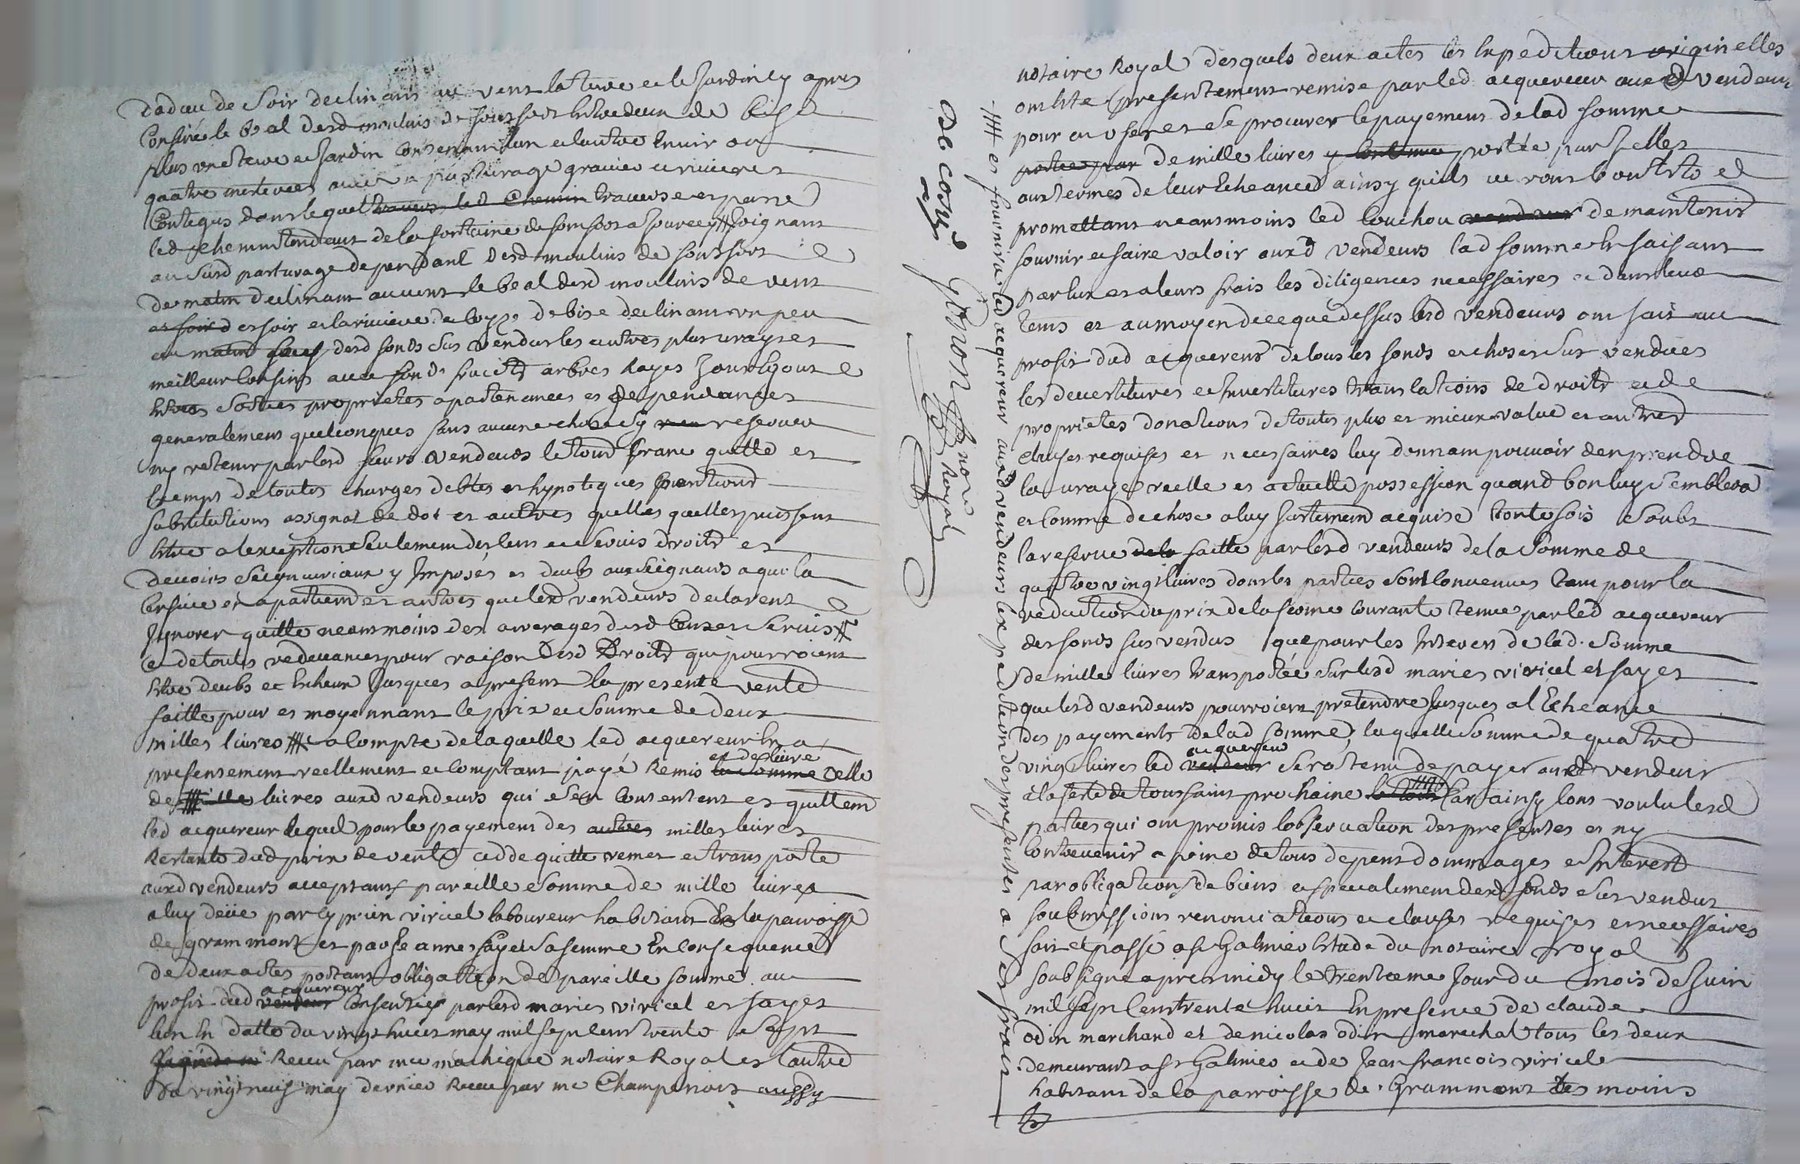 dad au de soir declinant au vent la terre et le Jardin cy apres
Confiné le beal desd moulins de soir Entredeux de bise
plus une terre et Jardin Contenant environ
quatre meterées avec pasturage gravier et rivieres
Contigus dans lequel travers led Chemin traverse et passe
led chemin tendant de la fontaine de fonfort a Joignant
au susd pasturage dependant desd moulins de
de matin declinant au vent le beal desd moulins de vent
et soir de soir et la riviere de de bise declinant un peu
au matin sauf desd fonds sus vendus les autres plus vrayes et
meilleur Confins avec fonds fruictz arbres hayes Jouxtigout
Entrées Sorties proprietes apartenances et dependances
generalement quelconques sans aucune chose y reserver
ny retenir par lesd sieurs vendeurs le tout franc quitte et
Exempt de toutes charges debtes et hypoteques pentions
Substitutions assignat de dot et autres quelles quelles puissent
Estre a lexception seulement des Cens et servis droitz et
devoirs seigneuriaux y Imposés et deubs aux seigneurs a qui la
Censive et apartiend et autres que lesd vendeurs declarent
Ignorer quitte neanmoins des arrerages desd Censes et servis
et de touts redevances pour raison desd Droitz qui pourroient
Estre deubs et Echeus Jusques a present la presente vente
faitte pour et moyennant le prix et somme de deux
milles livres a Compte de laquelle led acquereur En a
presentement reellement et comptant payé Remis la somme celle
de mille livres auxd vendeurs qui sen Contentent et quittent
led acquereur lequel pour le payement des autres milles livres
Restants dud prix de vente cedde quitte remet et transporte
auxd vendeurs acceptants pareille somme de mille livres
a luy deüe par Cyprien viricel laboureur habitant de la parroisse
de grammont et par anne fayet sa femme En consequence
de deux actes portant obligation de pareille somme au
acquereur
profit dud vendeur Consenties par lesd maries viricel et fayet
lun En datte du vingt huict may mil sept cent trente sept
Reçeu par me machique notaire Royal et lautre
du vingt neuf may dernier Receu par me Champenois aussy
notaire Royal desquels deux actes les Expeditions originelles
ont Esté presentement remise par led acquereur auxd vendeurs
pour en user et se procurer le payement de lad somme
portées par de mille livres y Contenue portée par Icelles
aux termes de leur Echeances ainsy quils verront bon Estre et
promettant neanmoins led Couchou vendeur de maintenir
fournir et faire valoir auxd vendeurs lad somme En faisant
par Eux et a leurs frais les diligences necessaires et dans leur
tems et au moyen de ce que dessus lesd vendeurs ont fait au
profit dud acquereur de tous les fonds et choses sus vendues
les devestitures et Investitures translations de droitz et de
proprietes donations de toutes plus et mieux value et autres
clauses requises et necessaires luy donnant pouvoir den prendre
la vraye reelle et actuelle possession quand bon luy semblera
et Comme de chose a luy Justement acquise toutefois soubs
la reserve de la faitte par lesd vendeurs de la somme de
quatre vingt livres dont les parties sont Convenues tant pour la
reduction du prix de la ferme Courante tenue par led acquereur
des fonds sus vendus que pour les Interets de lad somme
de mille livres transportée sur lesd maries viricel et fayet
que lesd vendeurs pourroient pretendre Jusques al Echeance
des payements de lad somme, laquelle somme de quatre
acquereur
vingt livres led vendeur sera tenu de payer auxd vendeurs
a la feste de toussaint prochaine Car ainsy lont voulu lesd
parties qui ont promis lobservation des presentes et ny
Contrevenir a peine de tous depens dommages et Interest
par obligations de biens et specialement desd fonds sus vendus
soubmissions renonciations et clauses requises et necessaires
fait et passé a st Galmier Estude du notaire royal
soubsigné apres midy le trentieme Jour du mois de Juin
mil sept Cent trente huict En presence de claude
odin marchand et de nicolas odin marechal tous les deux
demeurant a st Galmier et de Jean francois viricel
habitant de la parroisse de Grammont tesmoins
et fournira led acquereur auxd vendeurs expedition des presentes a ses frais
notre Royal